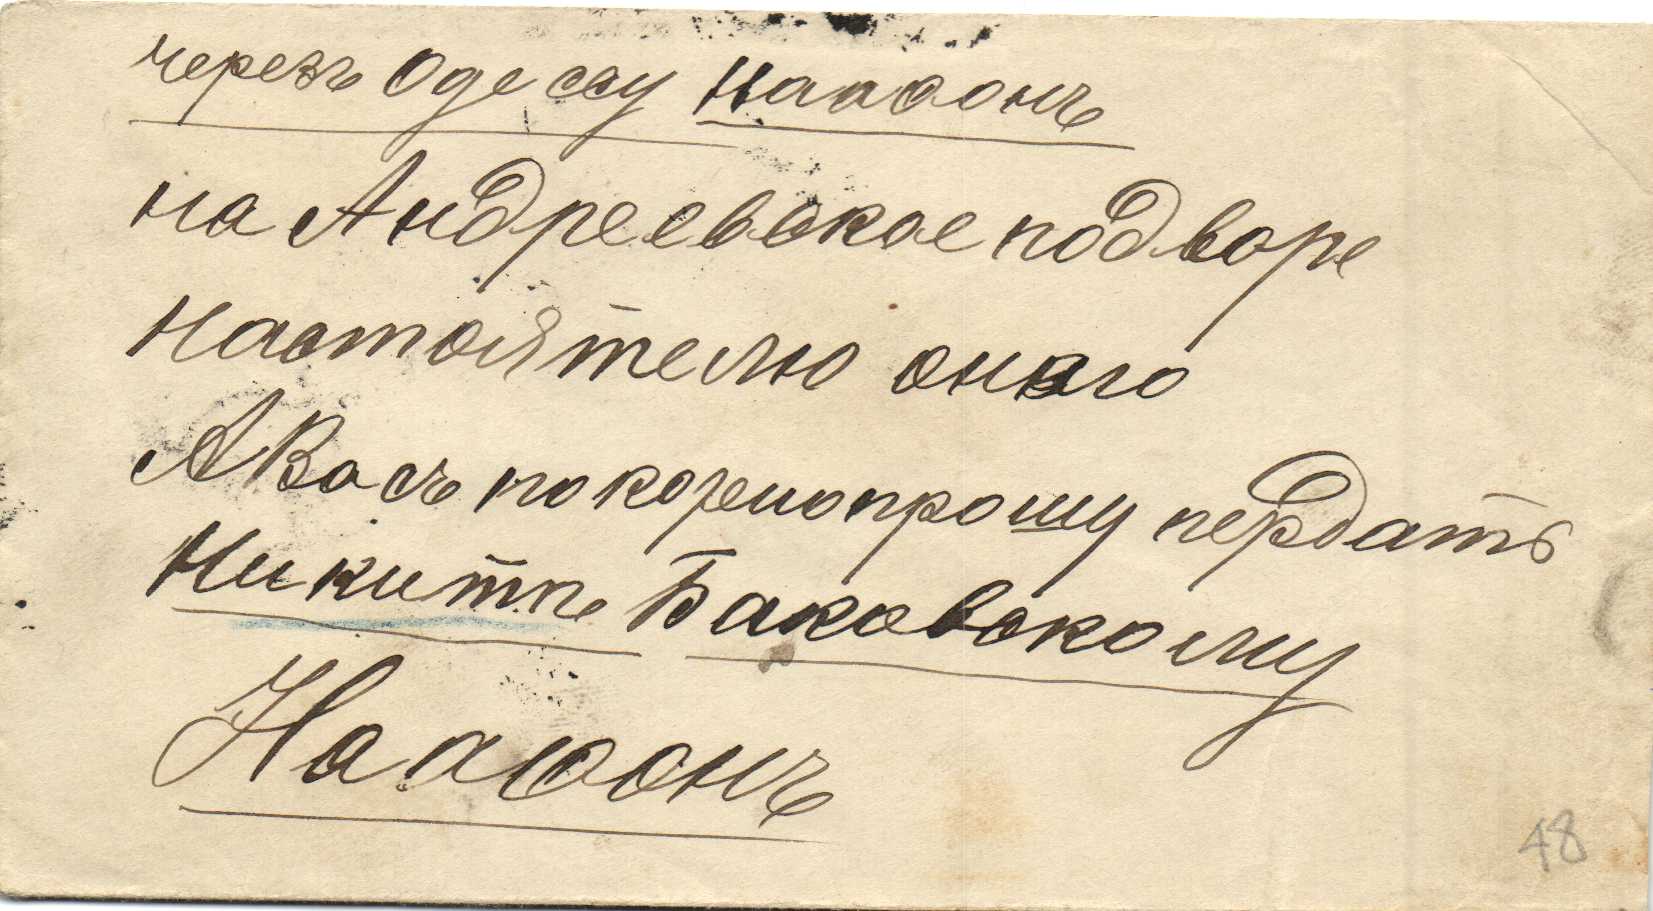 черезъ Одессу Наафонъ
на Андреевское подворе
настоятелю онаго
А Васъ покорнопрошу пердать
Никитѣ Баковскому
На афонъ
48